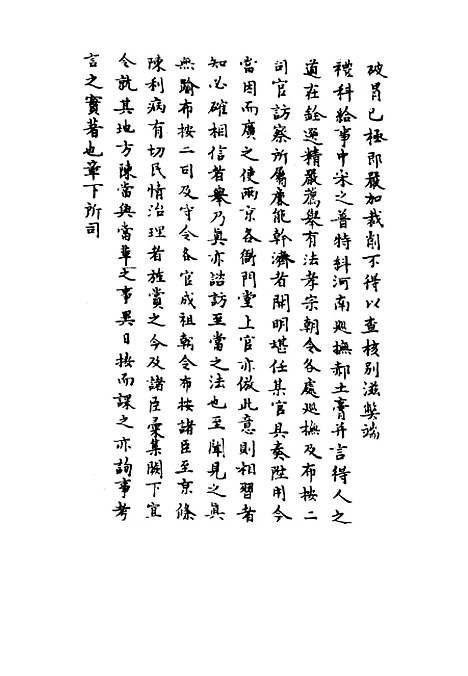 破冒已極即嚴加裁削不得以查核別滋獘端
禮科給事中宋之普特糾河南巡撫郝土膏并言得人之
道在銓選精嚴薦舉有法孝宗朝令各處巡撫及布按二
司官訪察所屬廉能幹濟者開明堪任某官具奏陞用今
當因而廣之使兩京各衙門堂上官亦倣此意則相習者
知必確相信者舉乃真亦諮訪至當之法也至聞見之真
無踰布按二司及守令各官成祖敕令布按諸臣至京條
陳利病有切民情治理者旌賞之今及諸臣彙集闕下宜
令就其地方陳當興當革之事異日按而課之亦詢事考
言之實著也章下所司